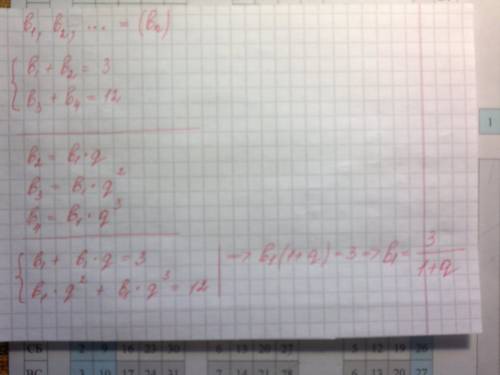 b₁, b₂, ... = (bₙ)
{ b₁ + b₂ = 3
b₃ + b₄ = 12
b₂ = b₁ · q
b₃ = b₁ · q²
b₄ = b₁ · q³
{ b₁ + b₁ · q = 3
b₁ · q² + b₁ · q³ = 12 | → b₁(1+q) = 3 → b₁ = 3/(1+q)
1
СБ 2 9 16 23 30 6 13 20 27 5 12 19 26
ВС 3 10 17 24 31 7 14 21 28 6 13 20 27